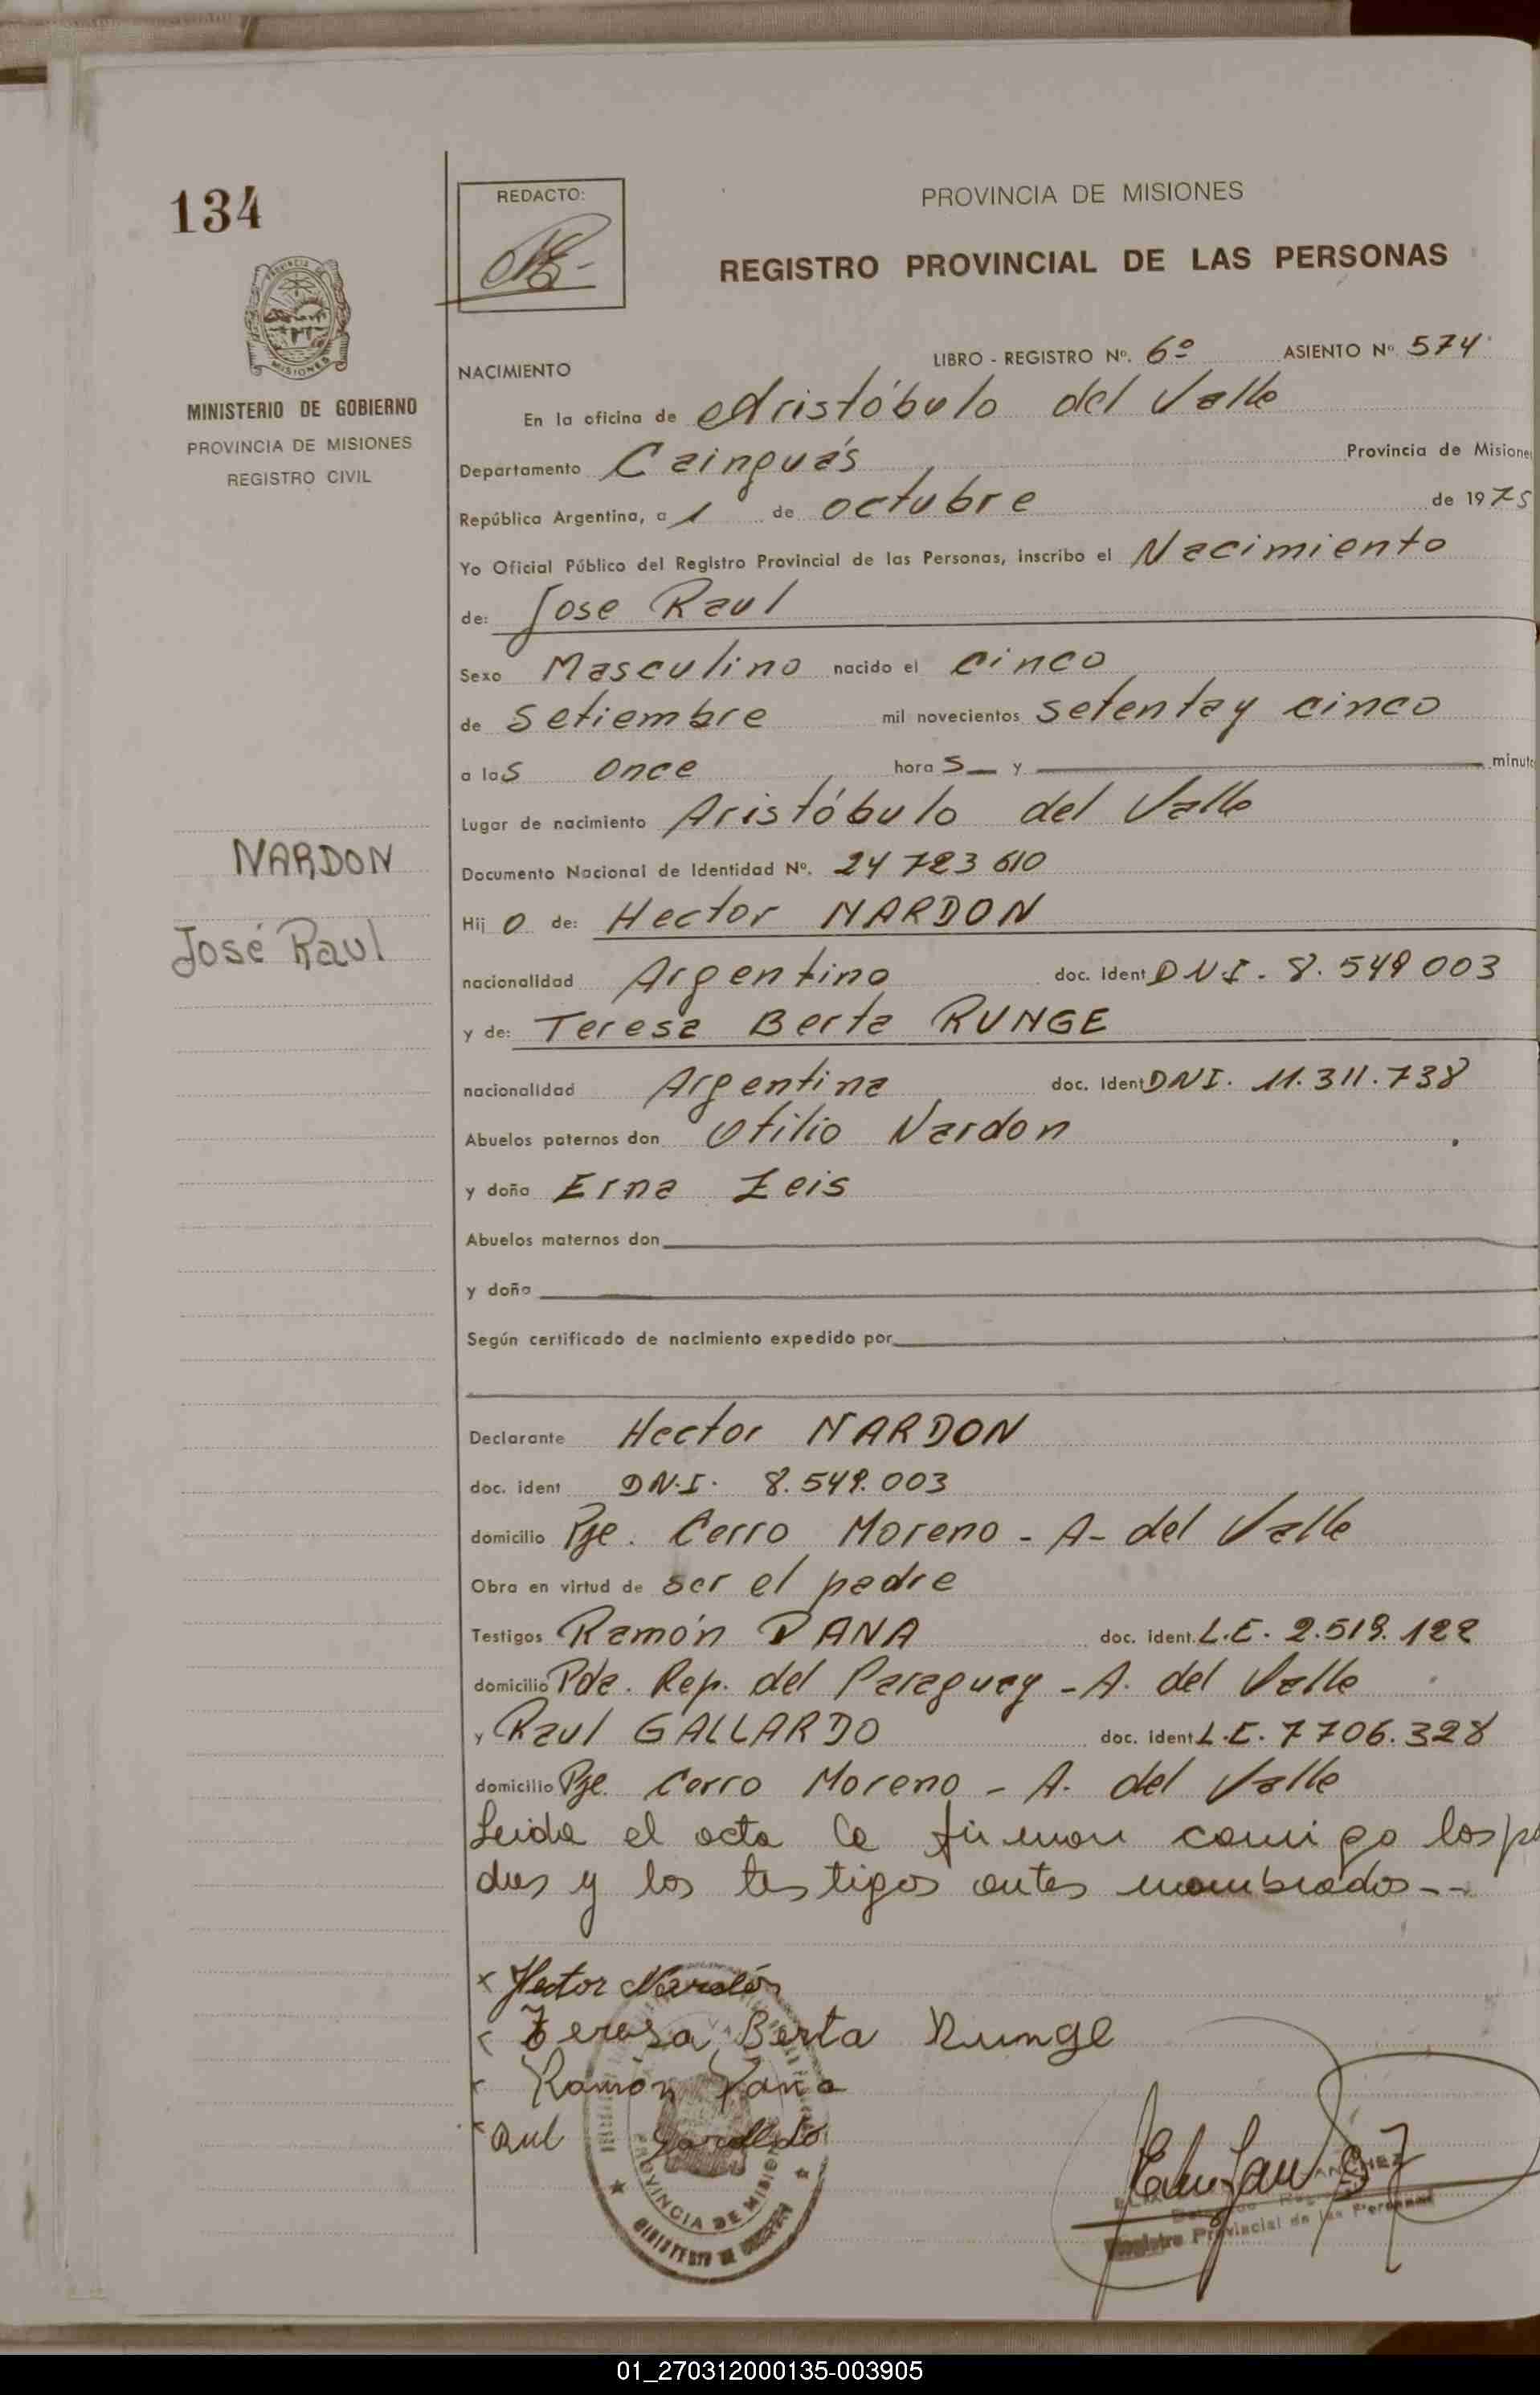 134
REDACTO:
PROVINCIA DE MISIONES
REGISTRO PROVINCIAL DE LAS PERSONAS
MISIONES
MINISTERIO DE GOBIERNO
PROVINCIA DE MISIONES
REGISTRO CIVIL
NACIMIENTO
LIBRO - REGISTRO Nº. 6º ASIENTO Nº 574
En la oficina de Aristóbulo del Valle
Departamento Cainguás Provincia de Misione
República Argentina, a 1 de octubre de 1975
Yo Oficial Público del Registro Provincial de las Personas, inscribo el Nacimiento
de: Jose Raul
Sexo Masculino nacido el cinco
de Setiembre mil novecientos setenta y cinco
a las once horas y minuto
Lugar de nacimiento Aristóbulo del Valle
NARDON
José Raul
Documento Nacional de Identidad Nº. 24 723 610
Hijo de: Hector NARDON
nacionalidad Argentino doc. ident DNI. 8.549 003
y de: Teresa Berta RUNGE
nacionalidad Argentina doc. Ident DNI. 11.311.738
Abuelos paternos don Otilio Nardon
y doña Erna Zeis
Abuelos maternos don
y doña
Según certificado de nacimiento expedido por
Declarante Hector NARDON
doc. ident DN.I. 8.549.003
domicilio Pje. Cerro Moreno - A- del Valle
Obra en virtud de ser el padre
Testigos Ramón PANA doc. ident. L.E. 2.519.122
domicilio Pda. Rep. del Paraguay - A. del Valle
y Raul GALLARDO doc. ident L.E. 7 706.328
domicilio Pje. Cerro Moreno - A. del Valle
Leida el acta la firman conmigo los pa
dres y los testigos antes nombrados--
x Hector Nardón
Teresa Berta Runge
Ramón Pana
Raul Garalldo
PROVINCIA DE MISIONES
MINISTERIO DE GOBIERNO
SANCHEZ
Registro Provincial de las Personas
01_270312000135-003905